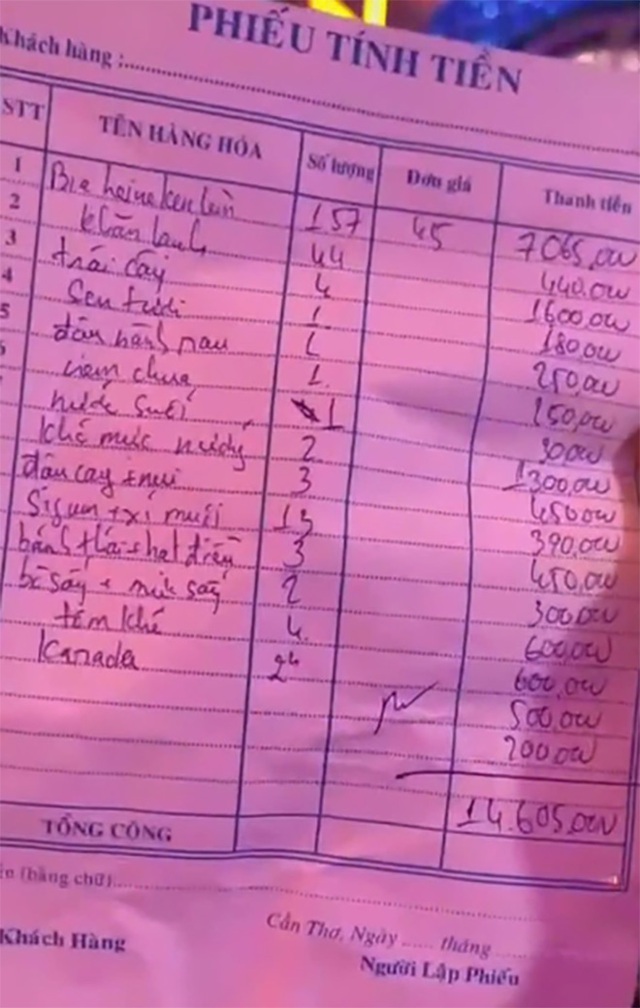 PHIẾU TÍNH TIỀN
Khách hàng :
STT TÊN HÀNG HÓA Số lượng Đơn giá Thành tiền
1 Bia heineken lùn 157 45 7065,000
2 khăn lạnh 44 440,000
3 trái cây 4 1600,000
4 Sen tươi 1 180,000
5 đậu hành nau 1 250,000
6 nem chua 1 150,000
nước suối 1 30000
khô mực nướng 2 1300,000
đậu cay + nui 3 450,000
Sigum + xí muội 13 390,000
bánh + hạt điều 3 450,000
bò sấy + mực sấy 2 300,000
tôm khô 4 600,000
Kanada 2h 600,000
500,000
200,000
14.605,000
TỔNG CỘNG
(bằng chữ)
Cần Thơ, Ngày ..... tháng
Khách Hàng Người Lập Phiếu